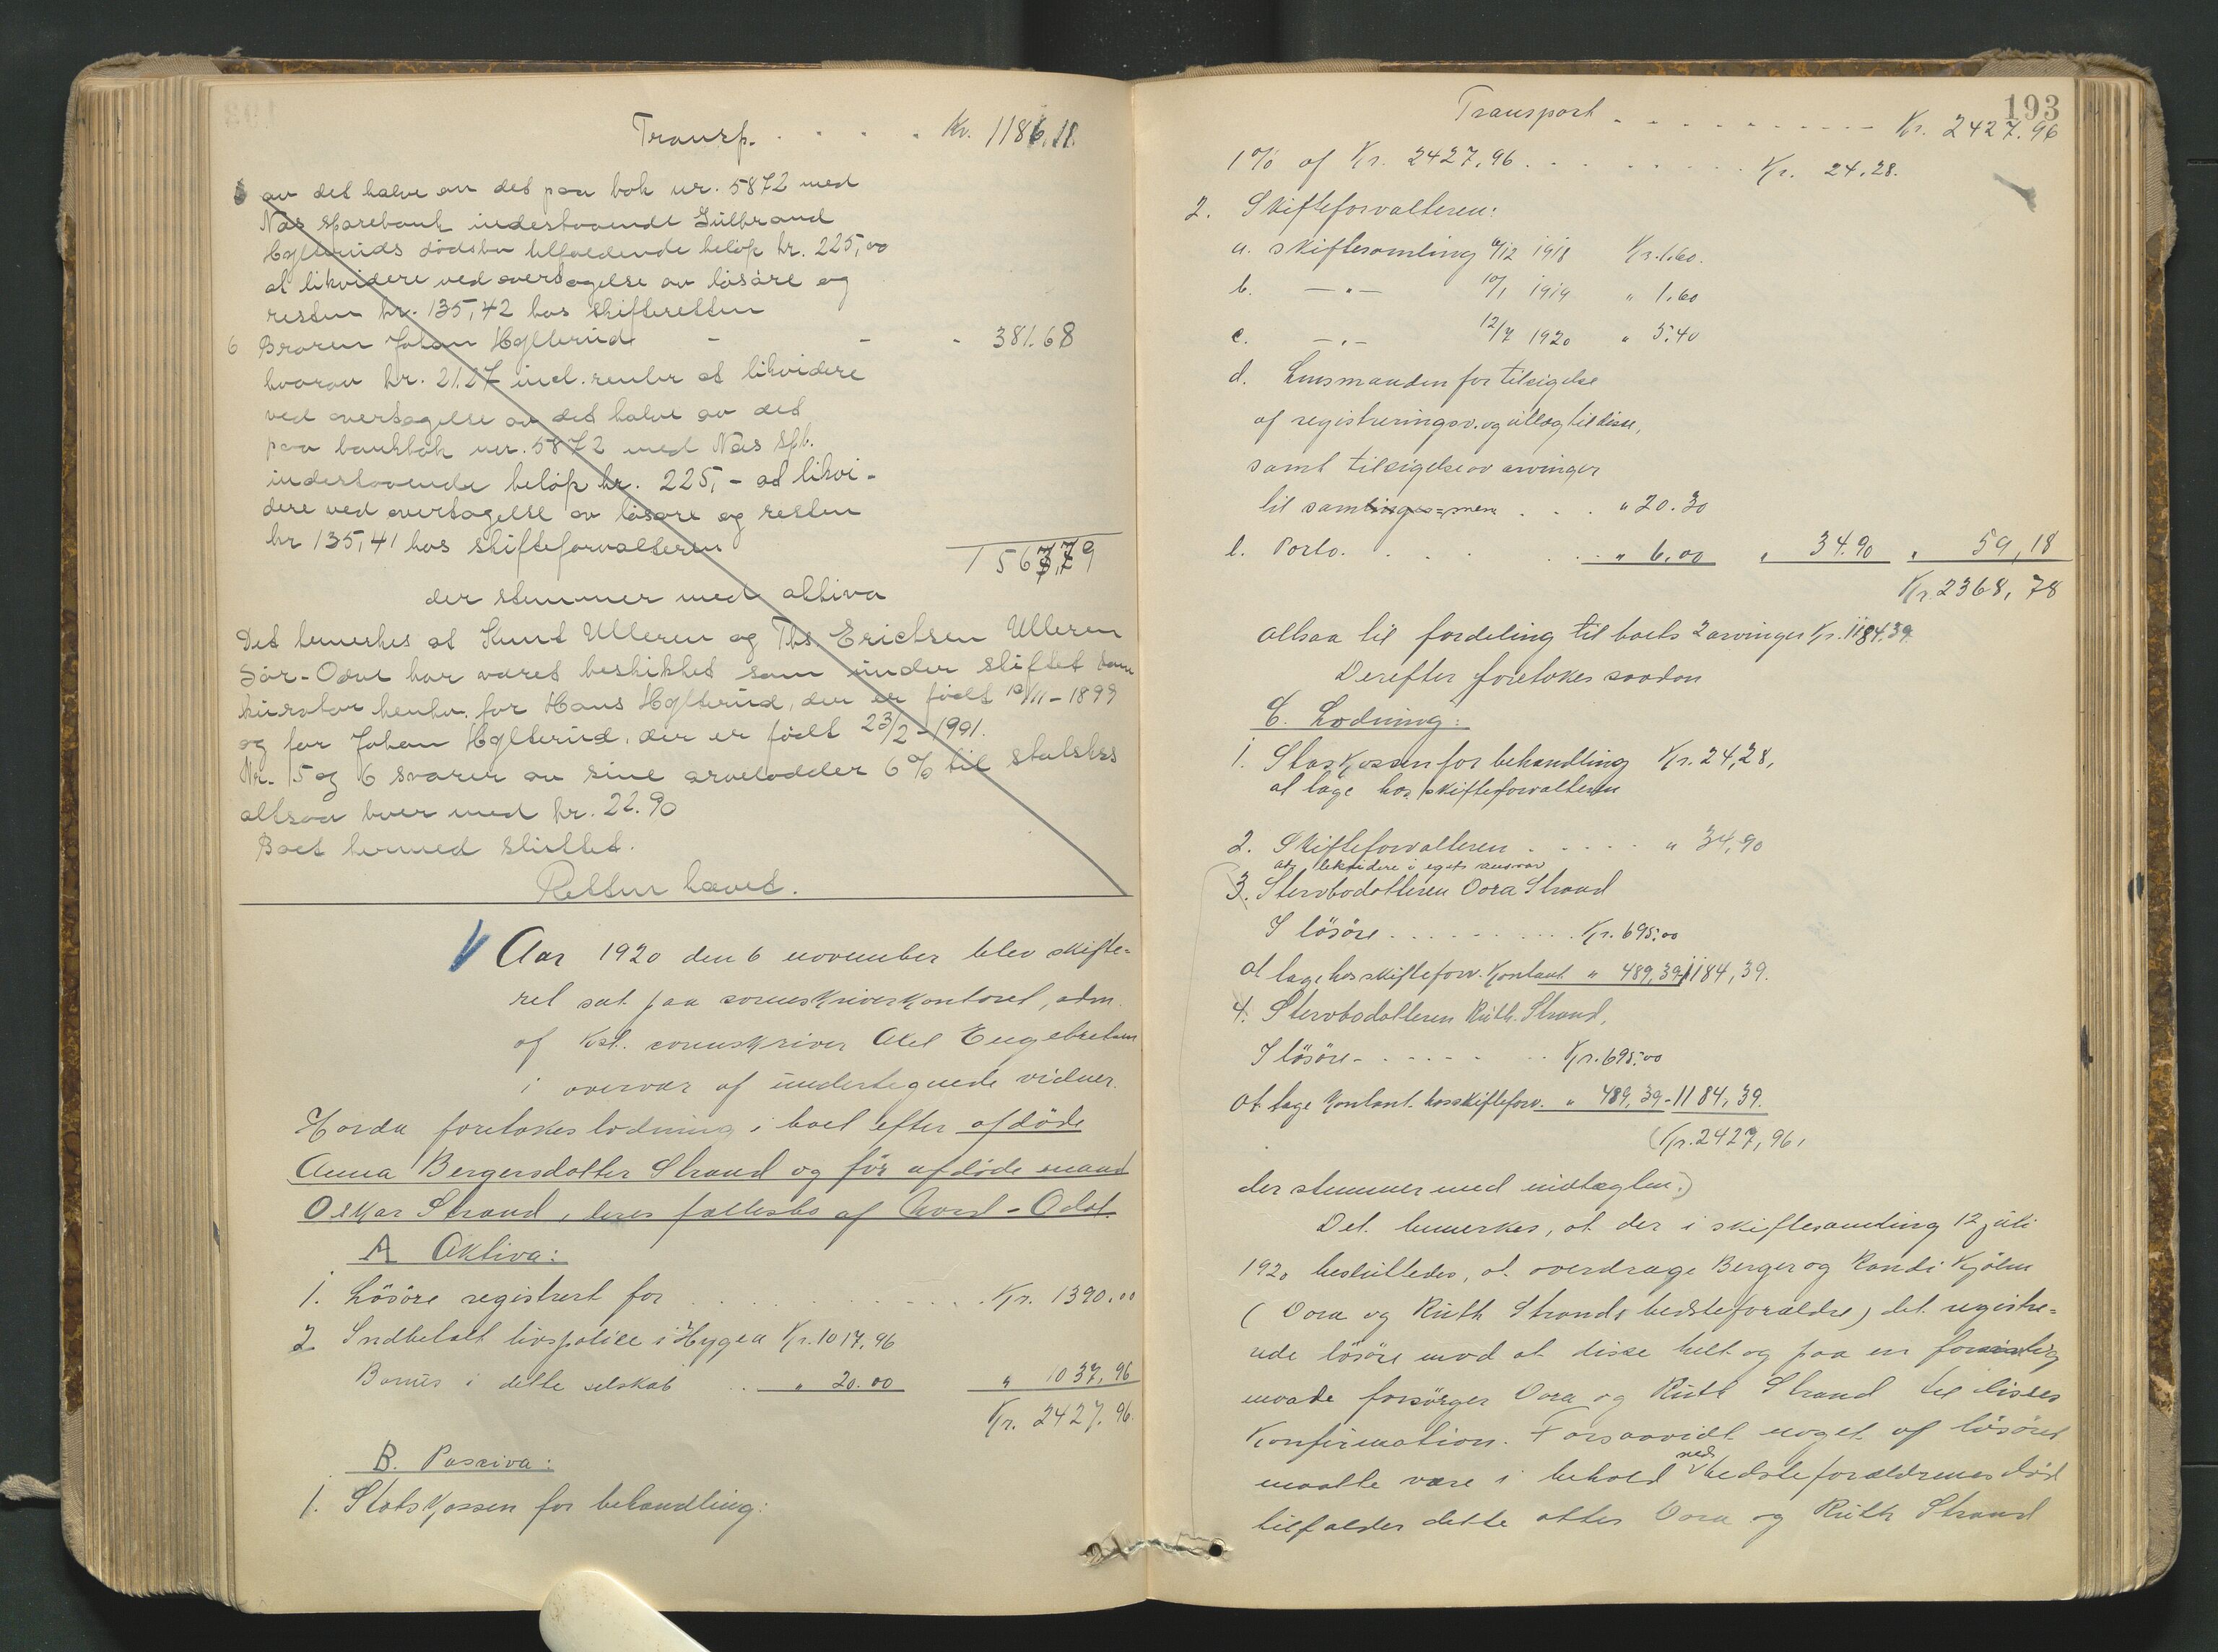 Transp. . . . . Kr. 1186.11.
av det halve av det paa bok nr. 5872 med
Nås sparebank indestaaende Gulbrand
Hylleruds dödsbu tilfaldende belöp kr. 225,00
at likvidere ved overtagelse av lösöre og
resten kr. 135,42 hos skifteretten
6 Broren Johan Hylterud - - - 381.68
hvorav kr. 21.27 incl. renter at likvidere
ved overtagelse av det halve av det
paa bankbok nr. 5872 med Nås spb.
indestaaende belöp kr. 225,- at likvi-
dere ved overtagelse av lösöre og resten
kr 135,41 hos skifteforvalteren
1567,79
der stemmer med aktiva
Det bemerkes at Knut Ulleren og Ths. Erichsen Ulleren
Sör-Odal har været beskikket som under skiftet som
kurator henhv. for Hans Hylterud, der er födt 10/11-1899
og for Johan Hylterud, der er födt 23/2-1901.
Nr. 5 og 6 svarer av sine arvelodder 6% til statsks
altsaa hver med kr. 22.90
Boet hermed sluttet.
Retten hævet.
Aar 1920 den 6 november blev skifte-
ret sat paa sorenskriverkontoret, adm.
af kst. sorenskriver Axel Engebretsen
i overvær af undertegnede vidner.
Hvorda foretokes lodning i boet efter afdöde
Anna Bergersdatter Strand og för afdöde mand
Oskar Strand, deres fællesbo af Nord-Odal.
A Aktiva:
1. Lösöre registrert for . . . . . . . Kr. 1390.00
2 Indbetalt livspolice i Hygea Kr. 1017,96
Bonus i dette selskab . . " 20.00 " 1037,96
Kr. 2427.96.
B. Passiva:
1. Statskassen for behandling:
193
Transport - - - - - - - - - Kr. 2427.96
1% af Kr. 2427,96. . . . . . . . Kr. 24.28.
2. Skifteforvalteren:
a. skiftesamling 6/12 1918 Kr. 1.60.
b. -"- 10/1 1919 " 1.60
c. -"- 12/7 1920 " 5.40
d. Lensmanden for tilsigelse
af registreringsv. og utlæg til disse,
samt tilsigelse av arvinger
til samlingerne . . . " 20.30
e. Porto. . . . . . " 6.00 " 34.90 " 59,18
Kr. 2368,78
altsaa til fordeling til boets 2 arvinger Kr. 1184.39.
Derefter foretokes saadan
C. Lodning:
1. Staskassen for behandling Kr. 24,28,
at tage hos skifteforvalteren
2. Skifteforvalteren . . . . . " 34,90
at likvidere i eget ansvar
3. Stervbodatteren Oora Strand
I lösöre . . . . . . . . . . Kr. 695.00
at tage hos skifteforv. Kontant " 489,39 1184,39.
4. Stervbodatteren Ruth Strand,
I lösöre - . . . . . . . Kr. 695.00
at tage kontant hos skifteforv. " 489,39 - 1184,39.
(Kr. 2427,96,
der stemmer med indtægten.)
Det bemerkes, at der i skiftesamling 12 juli
1920 besluttedes, at overdrage Berger og Randi Kjölen
(Oora og Ruth Strands bedsteforældre) det registre-
rede lösöre mod at disse helt og paa en forsvarlig
maade forsörger Oora og Ruth Strand til disses
Konfirmation. Forsaavidt noget af lösöret
maatte være i behold ved bedsteforældrenes död
tilfalder dette atter Oora og Ruth Strand